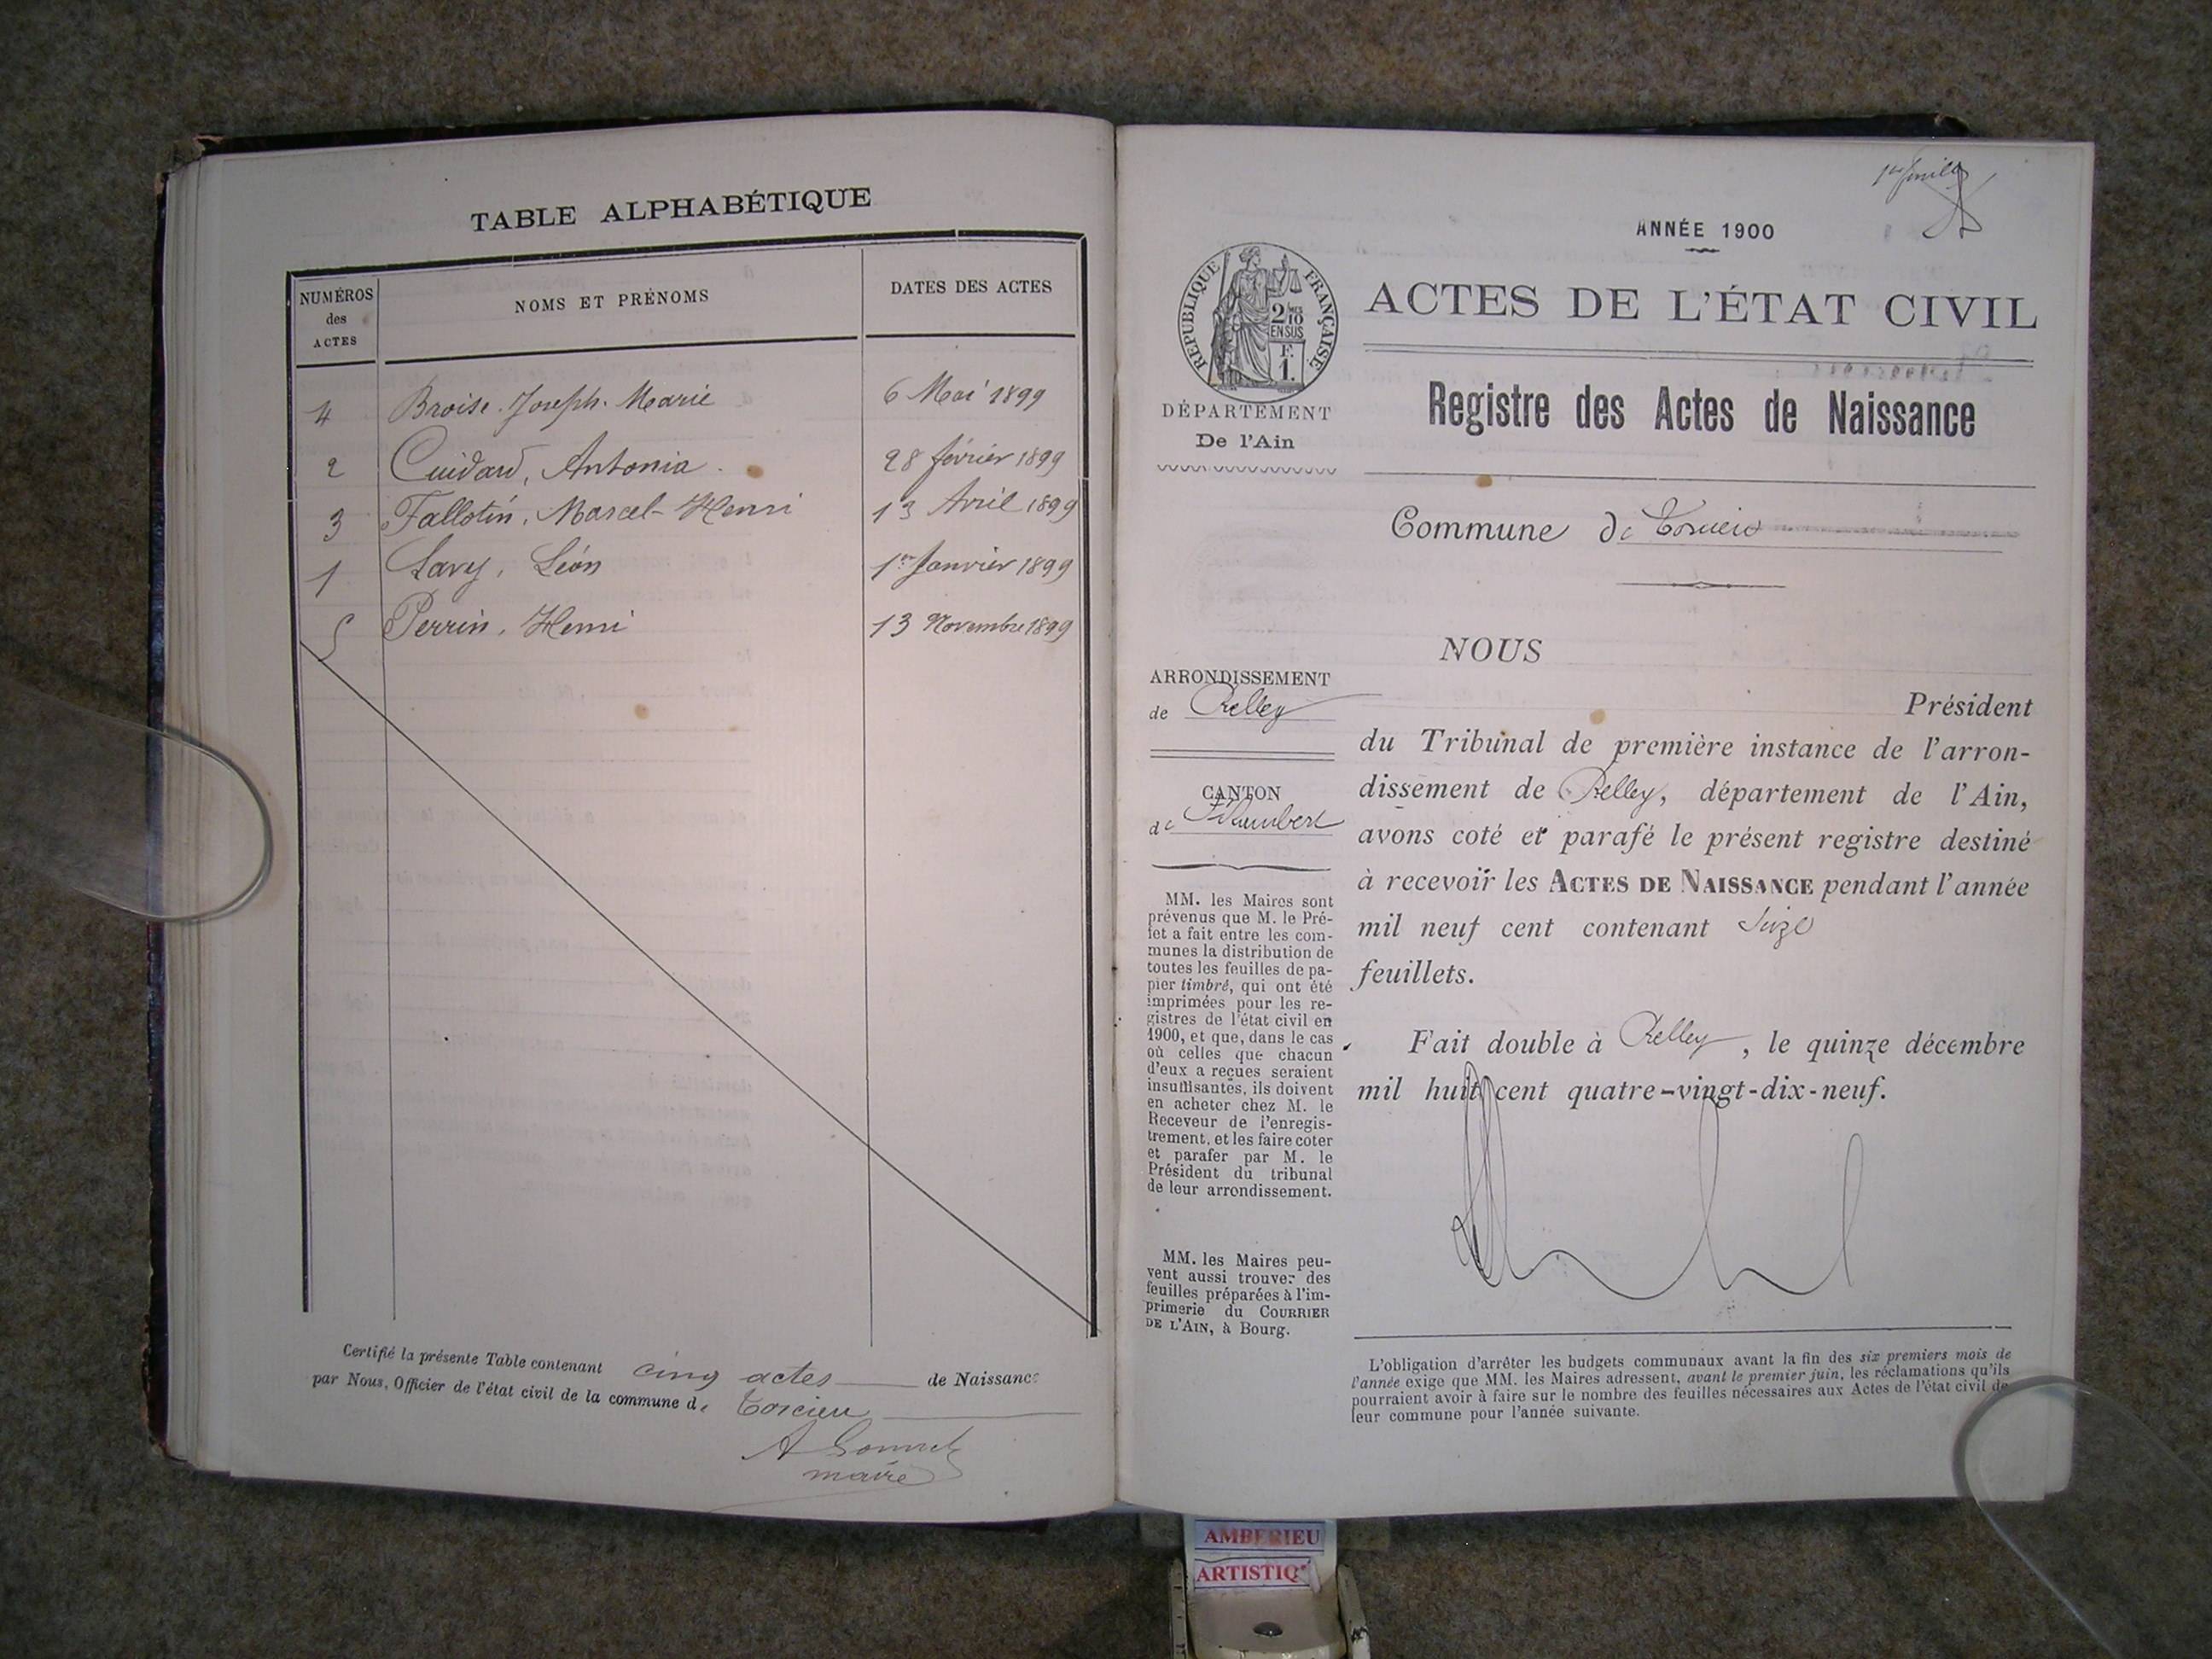 TABLE ALPHABÉTIQUE
NUMÉROS des ACTES
NOMS ET PRÉNOMS
DATES DES ACTES
4 Broise, Joseph-Marie 6 Mai 1899
2 Cuidard, Antonia 28 février 1899
3 Fallotin, Marcel-Henri 13 Avril 1899
1 Savy, Léon 1er Janvier 1899
5 Perrin, Henri 13 Novembre 1899
Certifié la présente Table contenant cinq actes de Naissance
par Nous, Officier de l'état civil de la commune de Torcieu
maire
ANNÉE 1900
RÉPUBLIQUE FRANÇAISE
2 MES 10
EN SUS
F.
1.
ACTES DE L'ÉTAT CIVIL
DÉPARTEMENT
De l'Ain
Registre des Actes de Naissance
Commune de Torcieu
ARRONDISSEMENT
de Belley
CANTON
de St Rambert
MM. les Maires sont
prévenus que M. le Pré-
fet a fait entre les com-
munes la distribution de
toutes les feuilles de pa-
pier timbré, qui ont été
imprimées pour les re-
gistres de l'état civil en
1900, et que, dans le cas
où celles que chacun
d'eux a reçues seraient
insuffisantes, ils doivent
en acheter chez M. le
Receveur de l'enregis-
trement, et les faire coter
et parafer par M. le
Président du tribunal
de leur arrondissement.
MM. les Maires peu-
vent aussi trouver des
feuilles préparées à l'im-
primerie du COURRIER
DE L'AIN, à Bourg.
NOUS
Président
du Tribunal de première instance de l'arron-
dissement de Belley, département de l'Ain,
avons coté et parafé le présent registre destiné
à recevoir les ACTES DE NAISSANCE pendant l'année
mil neuf cent contenant Seize
feuillets.
Fait double à Belley, le quinze décembre
mil huit cent quatre-vingt-dix-neuf.
L'obligation d'arrêter les budgets communaux avant la fin des six premiers mois de
l'année exige que MM. les Maires adressent, avant le premier juin, les réclamations qu'ils
pourraient avoir à faire sur le nombre des feuilles nécessaires aux Actes de l'état civil de
leur commune pour l'année suivante.
AMBERIEU
ARTISTIQ'